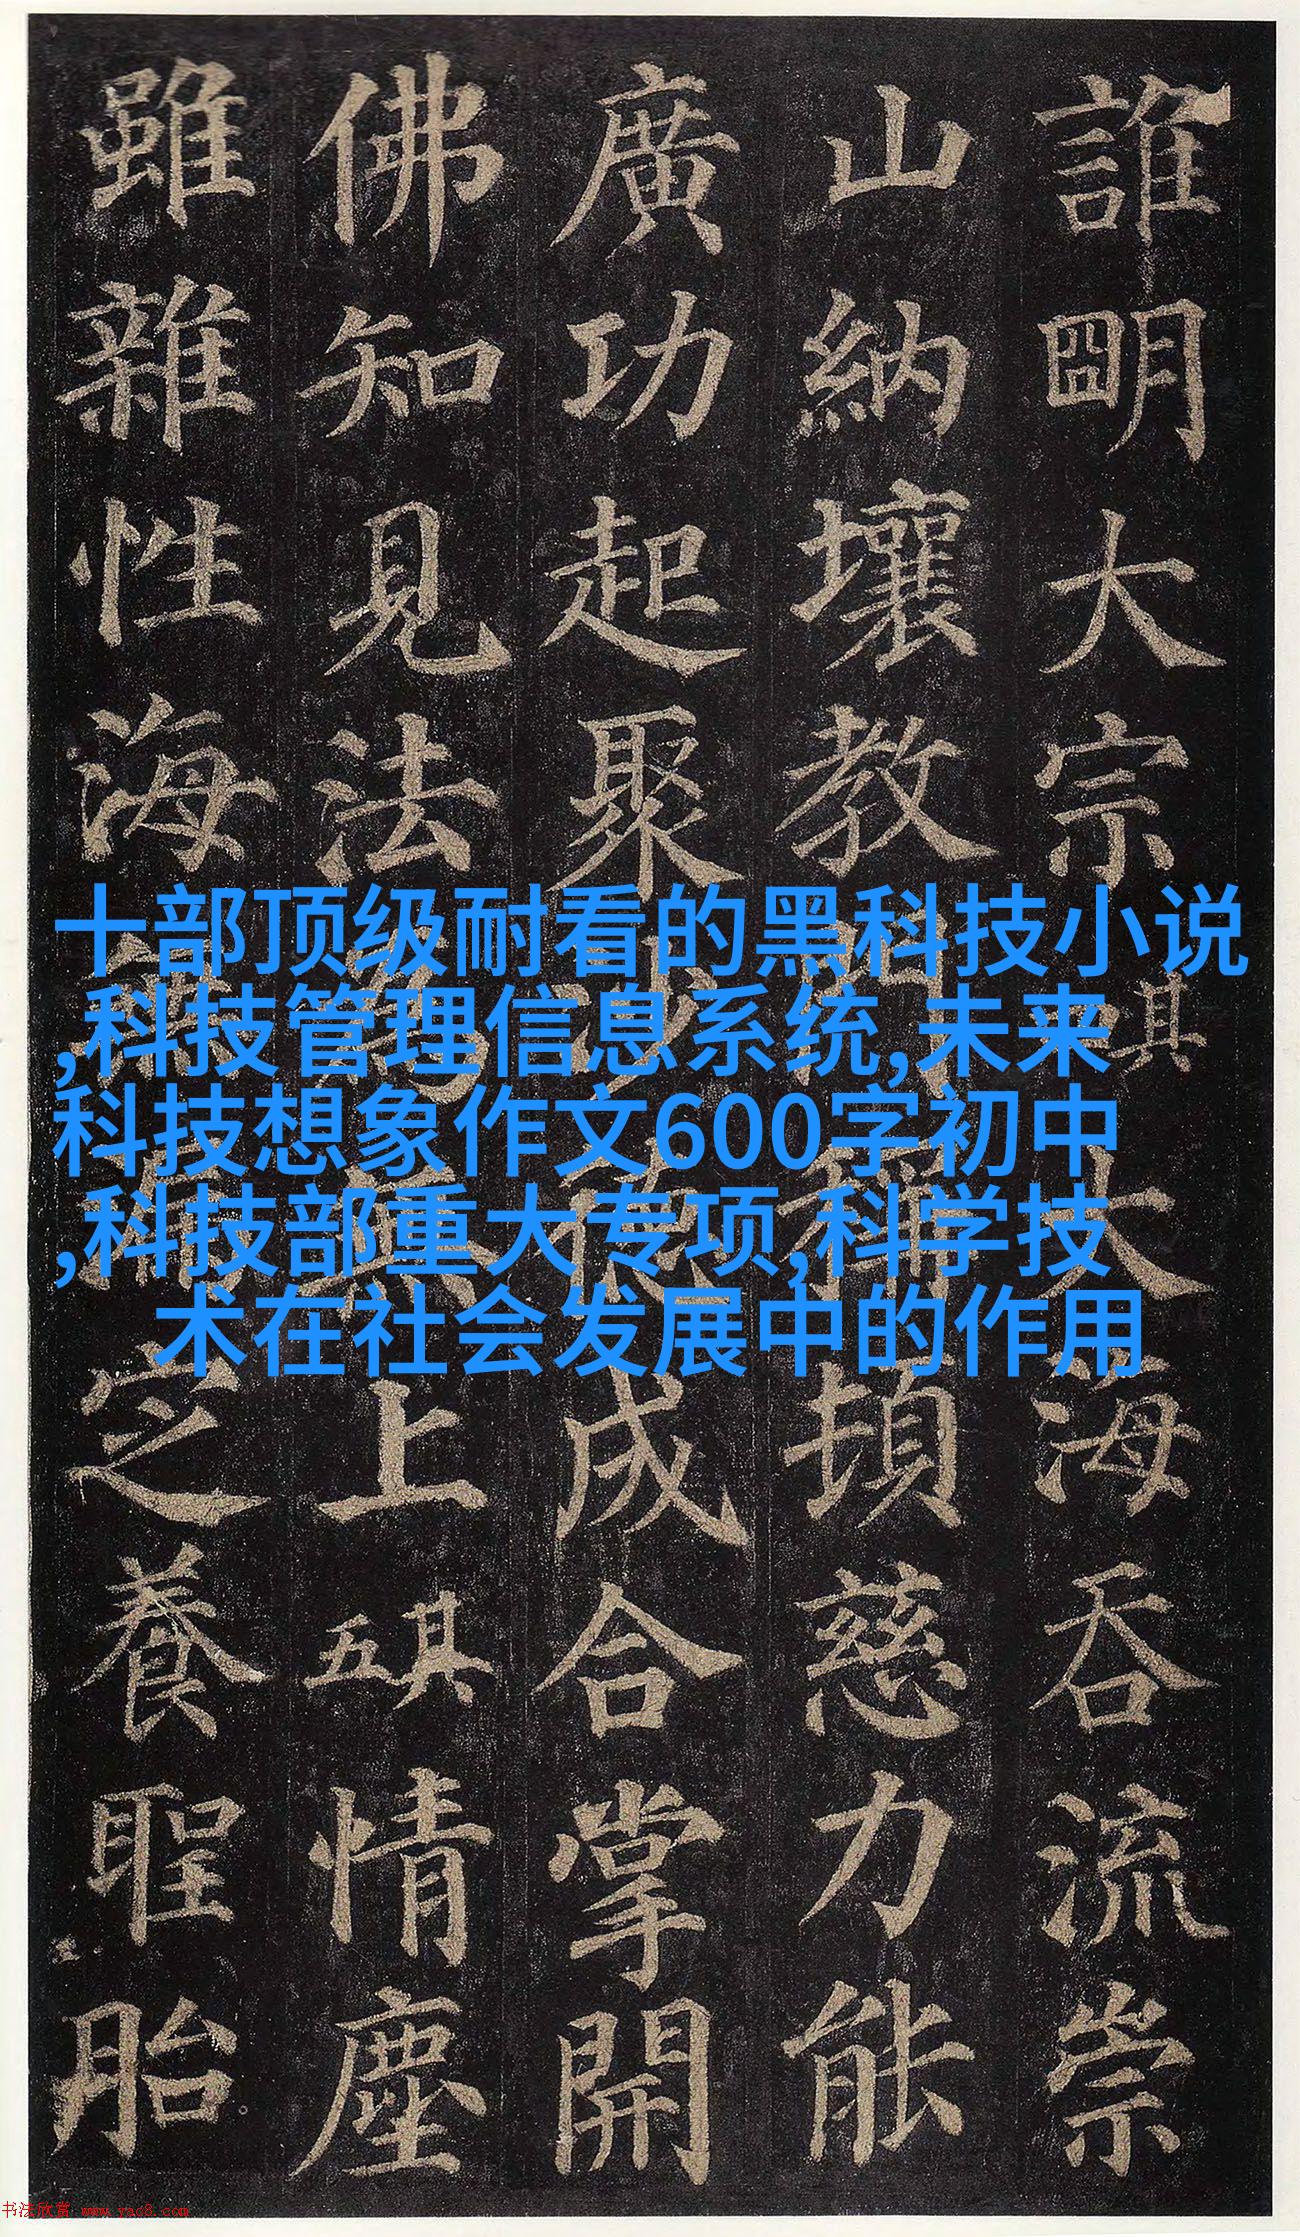 誰明大宗其大海吞流崇
山納壤教門稱頓慈力能
廣功起聚沙德成合掌開
佛知見法為無上其五情塵
雖雜性海無漏定養聖胎
十部顶级耐看的黑科技小说
,科技管理信息系统,未来
科技想象作文600字初中
,科技部重大专项,科学技
术在社会发展中的作用
书法欣赏 www.yac8.com